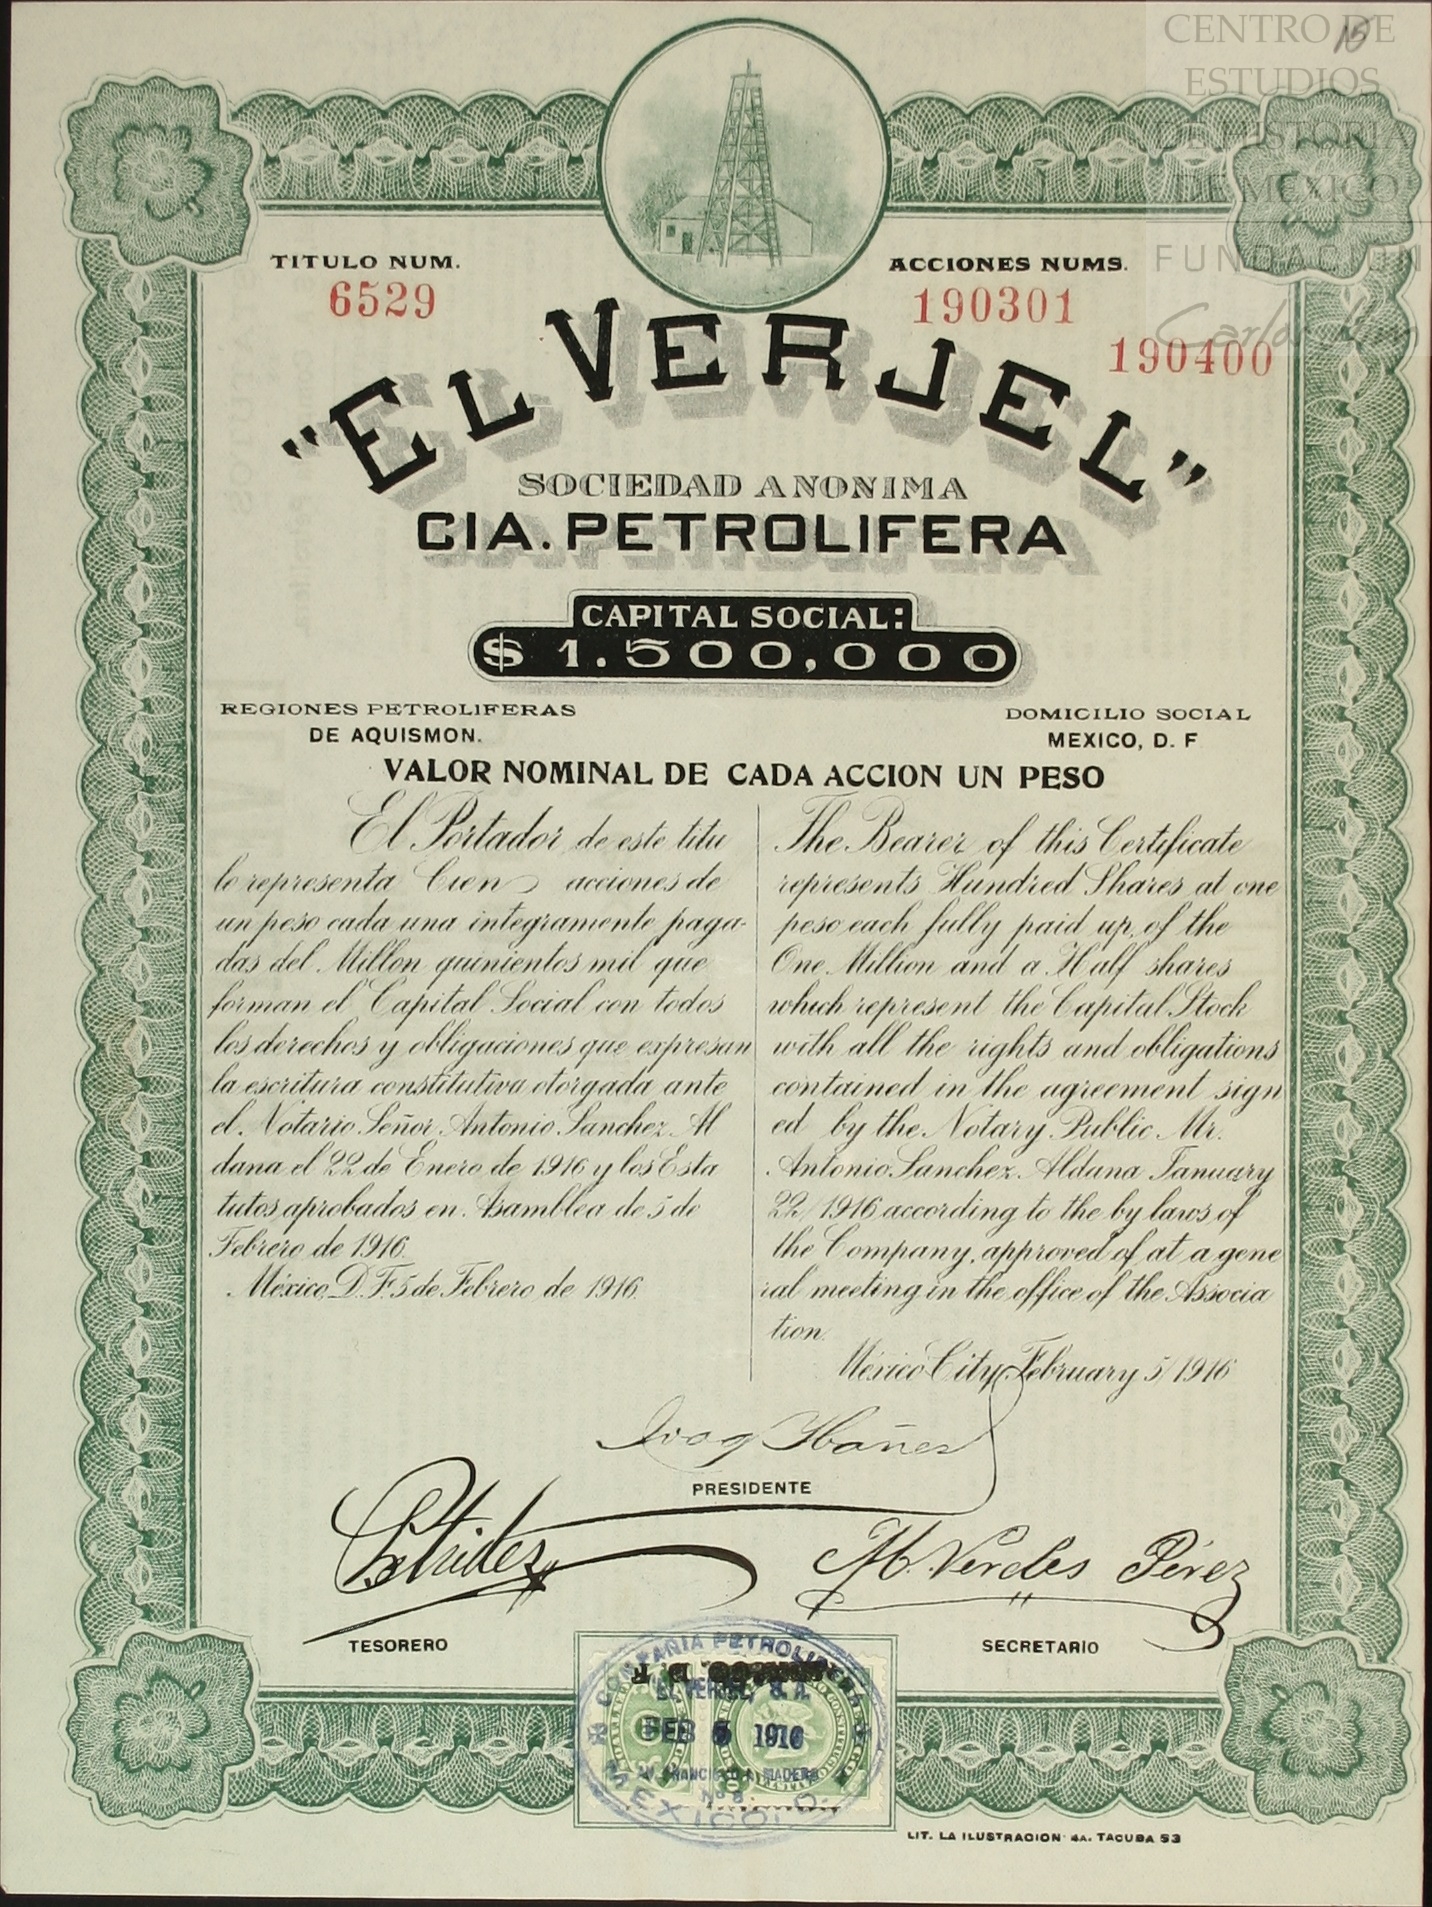 CENTRO DE
ESTUDIOS
DE HISTORIA
DE MÉXICO
FUNDACIÓN
Carlos Slim
15
TITULO NUM.
6529
ACCIONES NUMS.
190301
190400
"EL VERJEL"
SOCIEDAD ANONIMA
CIA. PETROLIFERA
CAPITAL SOCIAL:
$ 1.500,000
REGIONES PETROLIFERAS
DE AQUISMON.
DOMICILIO SOCIAL
MEXICO, D. F
VALOR NOMINAL DE CADA ACCION UN PESO
El Portador de este titu
lo representa Cien acciones de
un peso cada una integramente paga-
das del Millon quinientos mil que
forman el Capital Social con todos
los derechos y obligaciones que expresan
la escritura constitutiva otorgada ante
el Notario Señor Antonio Sanchez Al
dana el 22 de Enero de 1916 y los Esta
tutos aprobados en Asamblea de 5 de
Febrero de 1916.
México, D. F. 5 de Febrero de 1916.
The Bearer of this Certificate
represents Hundred Shares at one
peso each fully paid up, of the
One Million and a Half shares
which represent the Capital Stock
with all the rights and obligations
contained in the agreement sign
ed by the Notary Public Mr.
Antonio Sanchez Aldana January
22/1916 according to the by laws of
the Company, approved of at a gene
ral meeting in the office of the Associa
tion.
México City February 5/1916
Ibañez
PRESIDENTE
M. Verdes Pérez
TESORERO
SECRETARIO
COMPAÑIA PETROLIFERA
EL VERJEL, S. A.
FEB 5 1916
AV. FRANCISCO I. MADERO
No 8.
MEXICO, D.
LIT. LA ILUSTRACION 4A. TACUBA 53